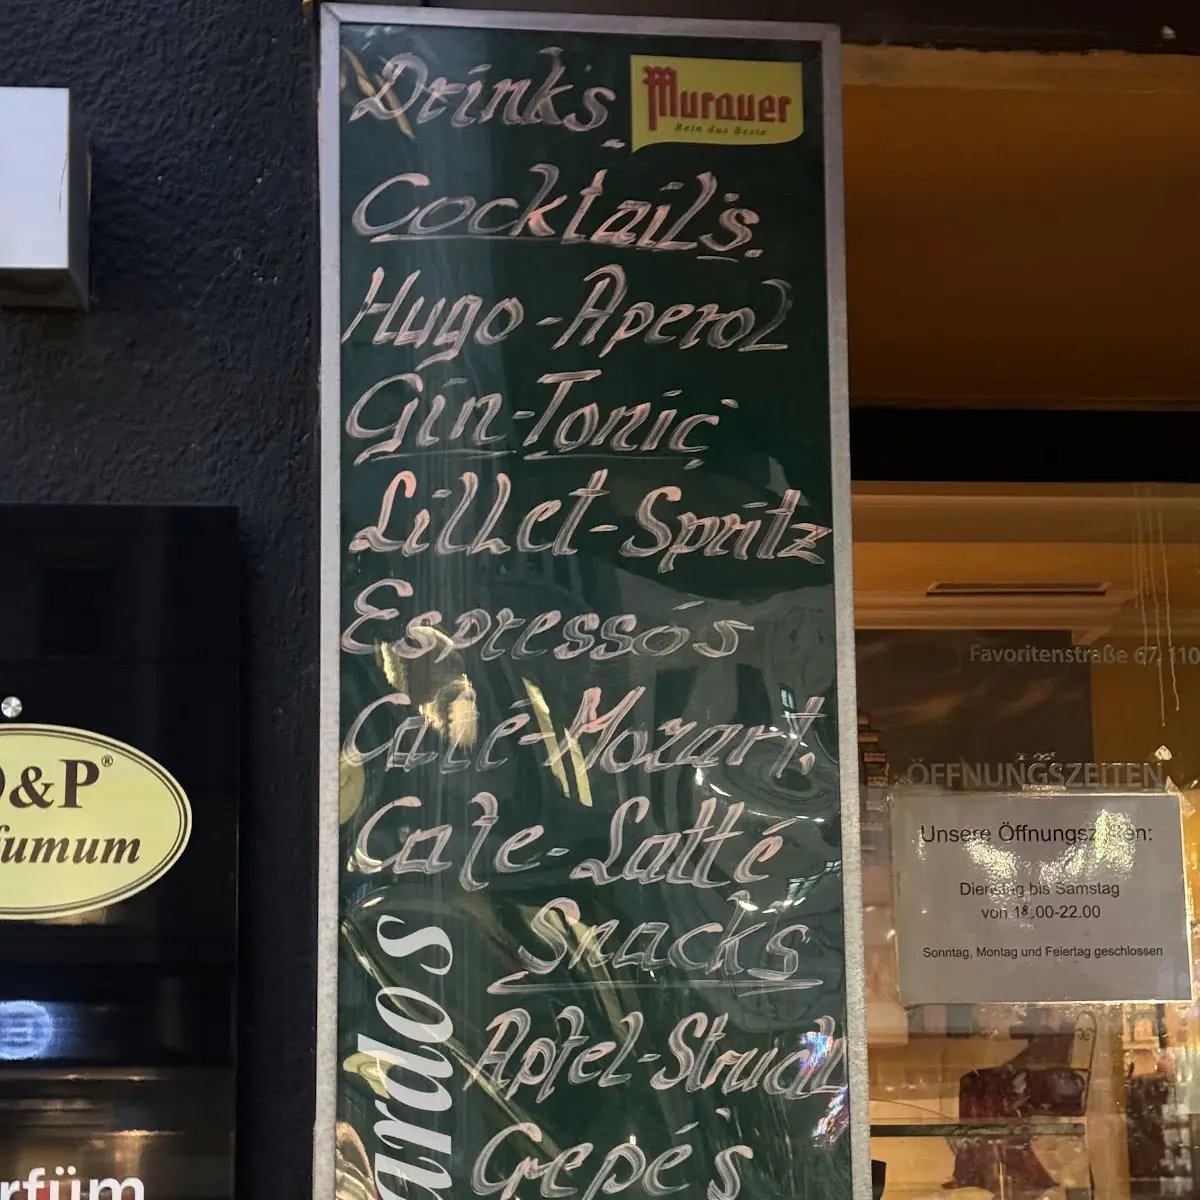 Drink's
Murauer
Rein das Beste
Cocktail's.
Hugo-Aperol
Gin-Tonic
Lillet-Spritz
Espressó's
Café-Mozart.
Cafe-Latté
Snacks
Apfel-Strudl
Crepé's
ardo's
&P®
fumum
rfüm
Favoritenstraße 67, 110
ÖFFNUNGSZEITEN
Unsere Öffnungszeiten:
Dienstag bis Samstag
von 18.00-22.00
Sonntag, Montag und Feiertag geschlossen